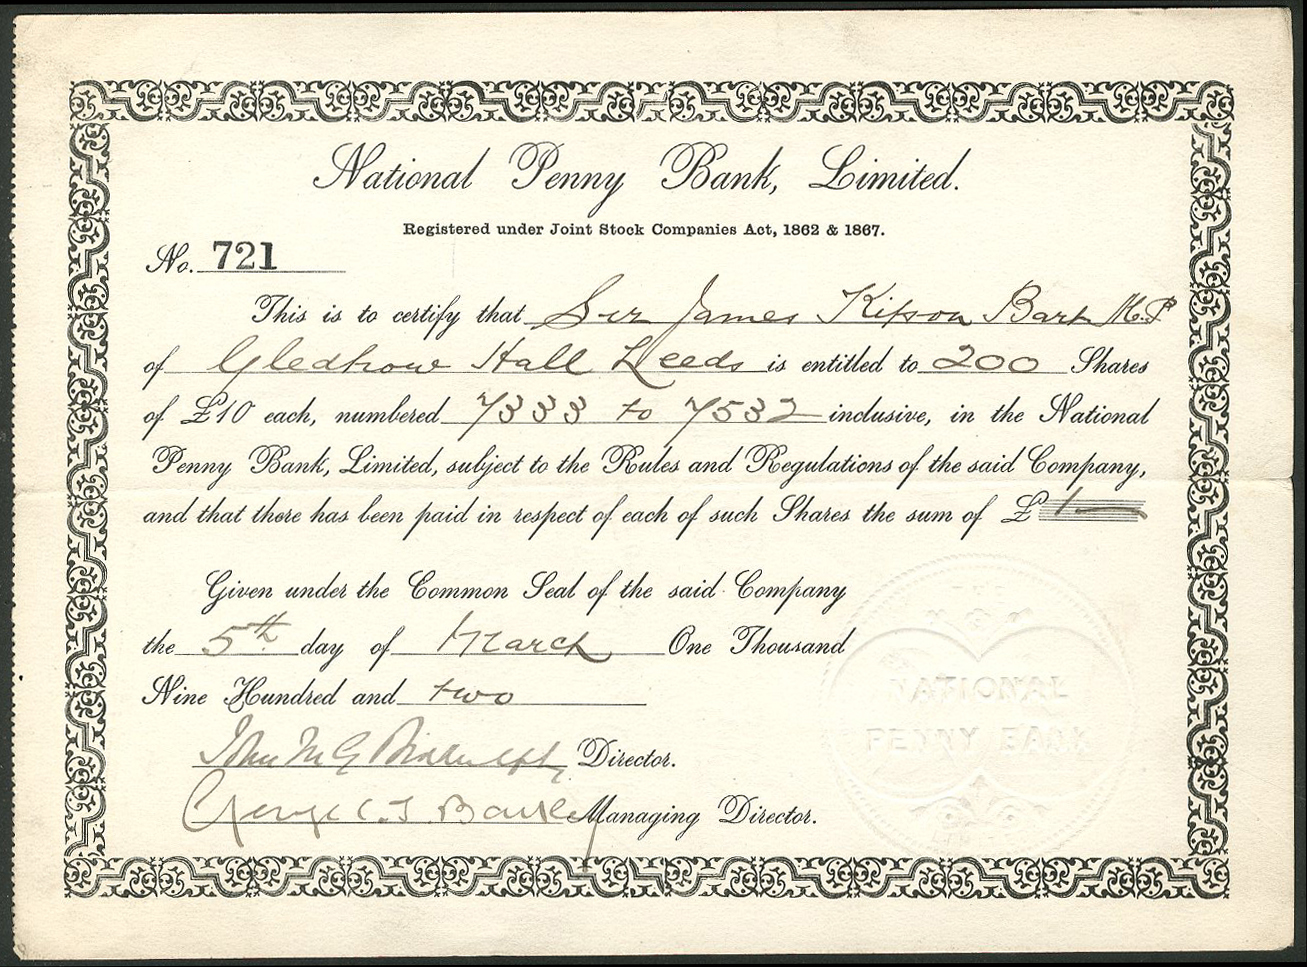 National Penny Bank, Limited.
Registered under Joint Stock Companies Act, 1862 & 1867.
No. 721
This is to certify that Sir James Kitson Bart M.P
of Gledhow Hall Leeds is entitled to 200 Shares
of £10 each, numbered 7333 to 7532 inclusive, in the National
Penny Bank, Limited, subject to the Rules and Regulations of the said Company,
and that there has been paid in respect of each of such Shares the sum of £1
Given under the Common Seal of the said Company
the 5th day of March One Thousand
Nine Hundred and two
John M G Director.
George C. T. Managing Director.
NATIONAL
PENNY BANK